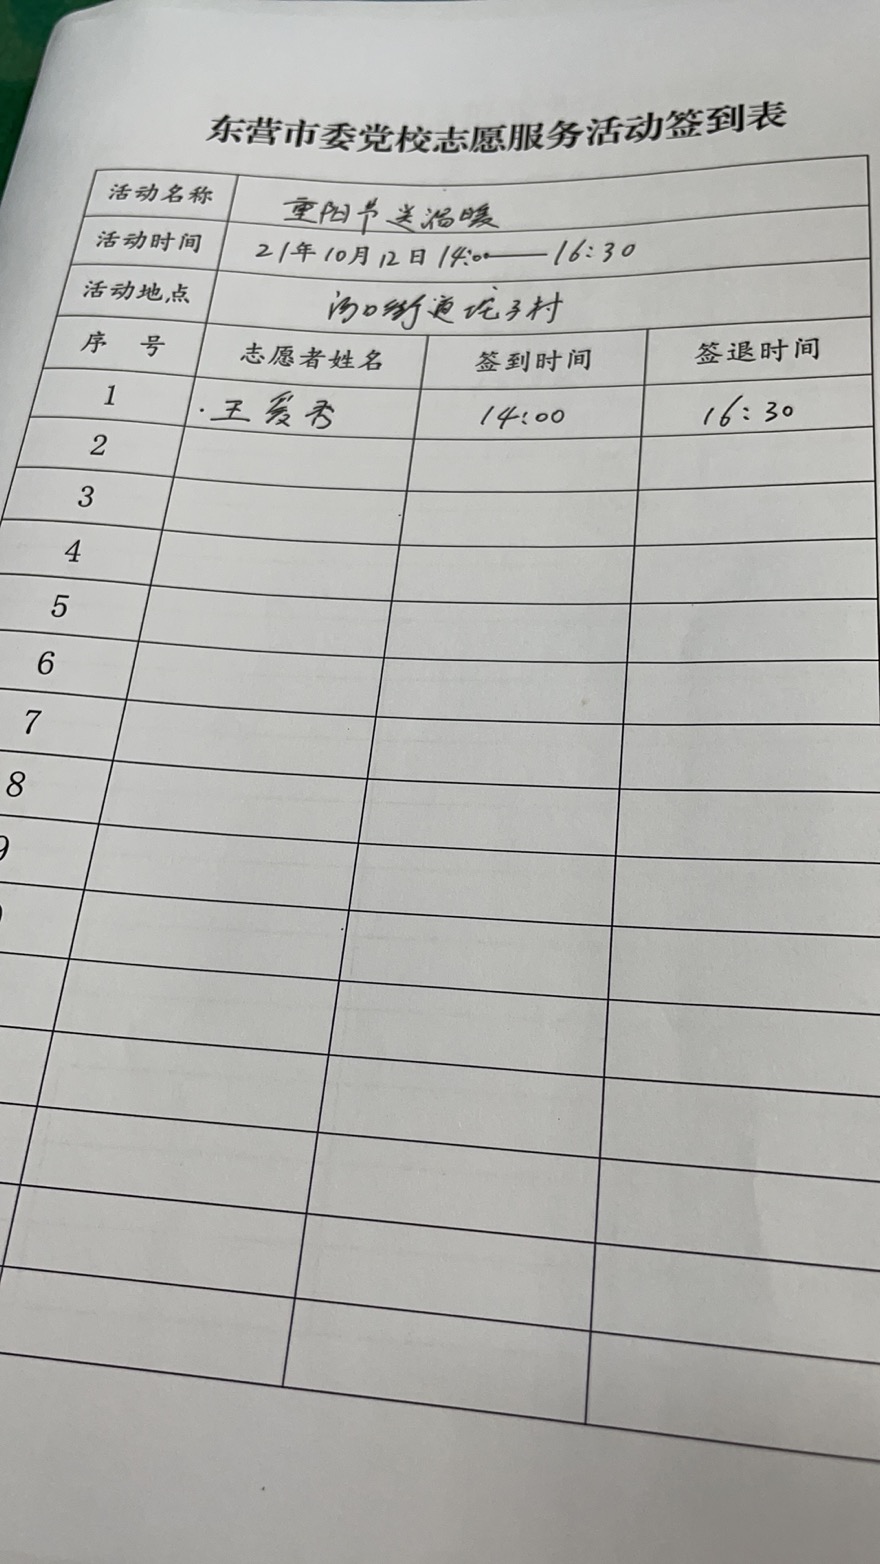 东营市委党校志愿服务活动签到表
活动名称 重阳节送温暖
活动时间 21年10月12日14:00——16:30
活动地点 河口街道坨子村
序 号 志愿者姓名 签到时间 签退时间
1 王爱秀 14:00 16:30
2
3
4
5
6
7
8
9